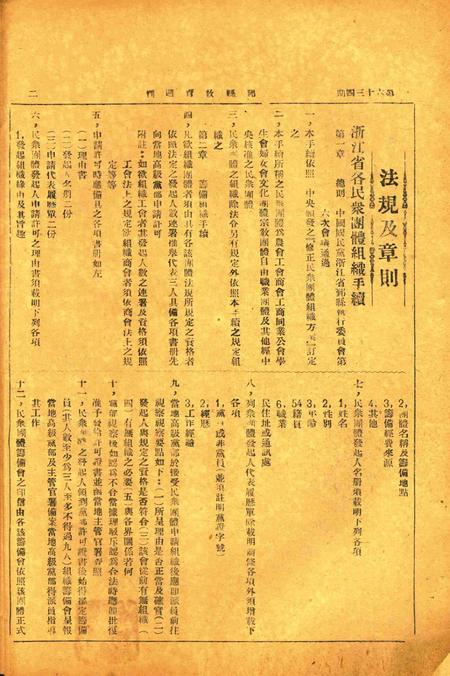 第六十三四期
鄞縣教育週刊
二
法規及章則
浙江省各民眾團體組織手續
中國國民黨浙江省鄞縣執行委員會第
六次會議通過
第一章 總則
一、本手續依照 中央頒發之「修正民眾團體組織方案」訂定
之
二、本手續所稱之民眾團體為農會工會商會工商同業公會學
生會婦女會文化團體宗教團體自由職業團體及其他經中
央核准之民眾團體
三、民眾團體之組織除法令另有規定外依照本手續之規定組
織之
第二章 籌備組織手續
四、凡欲組織民眾團體者須由具有各該團體法規所規定之資格者
依照法定之發起人數連署推舉代表三人具備各項書冊先
向當地高級黨部申請許可
附註：如欲組織工會者其發起人數之連署及資格須依照
工會法上之規定籌組織商會者須依商會法上之規
定等等
五、申請許可時應備具之各項書冊如左
(一)理由書
(二)發起人名冊二份
(三)申請代表履歷單二份
六、民眾團體發起人申請許可之理由書須載明下列各項
1.發起組織緣由及其旨趣
2.團體名稱及籌備地點
3.籌備經費來源
4.其他
七、民眾團體發起人名冊須載明下列各項
1.姓名
2.性別
3.年齡
4.籍貫
5.
6.職業
民住址或通訊處
八、列眾團體發起人代表履歷單除載明前條各項外須增載下
各項
1.黨員或非黨員（並須註明黨證字號）
2.經歷
3.工作經驗
九、當地高級黨部於接受民眾團體申請組織後應即派員前往
視察視察要點如下：(一)所呈理由是否正當及確實(二)
發起人與規定之資格是否符合(三)該會從前有無組織(
四)有無組織之必要(五)與各界關係若何
十、黨部視察後如認為不合當據理駁斥認為合法時應即批復
准予發給許可證書並函當地主管官署查照
十一、民眾團體之發起人領到黨部許可證書後始得推定籌備
員（其人數至少為三人至多不得過九人）組織籌備會呈報
當地高級黨部及主管官署備案當地高級黨部得派員指導
其工作
十二、民眾團體籌備會之印信由各該籌備會依照該團體正式